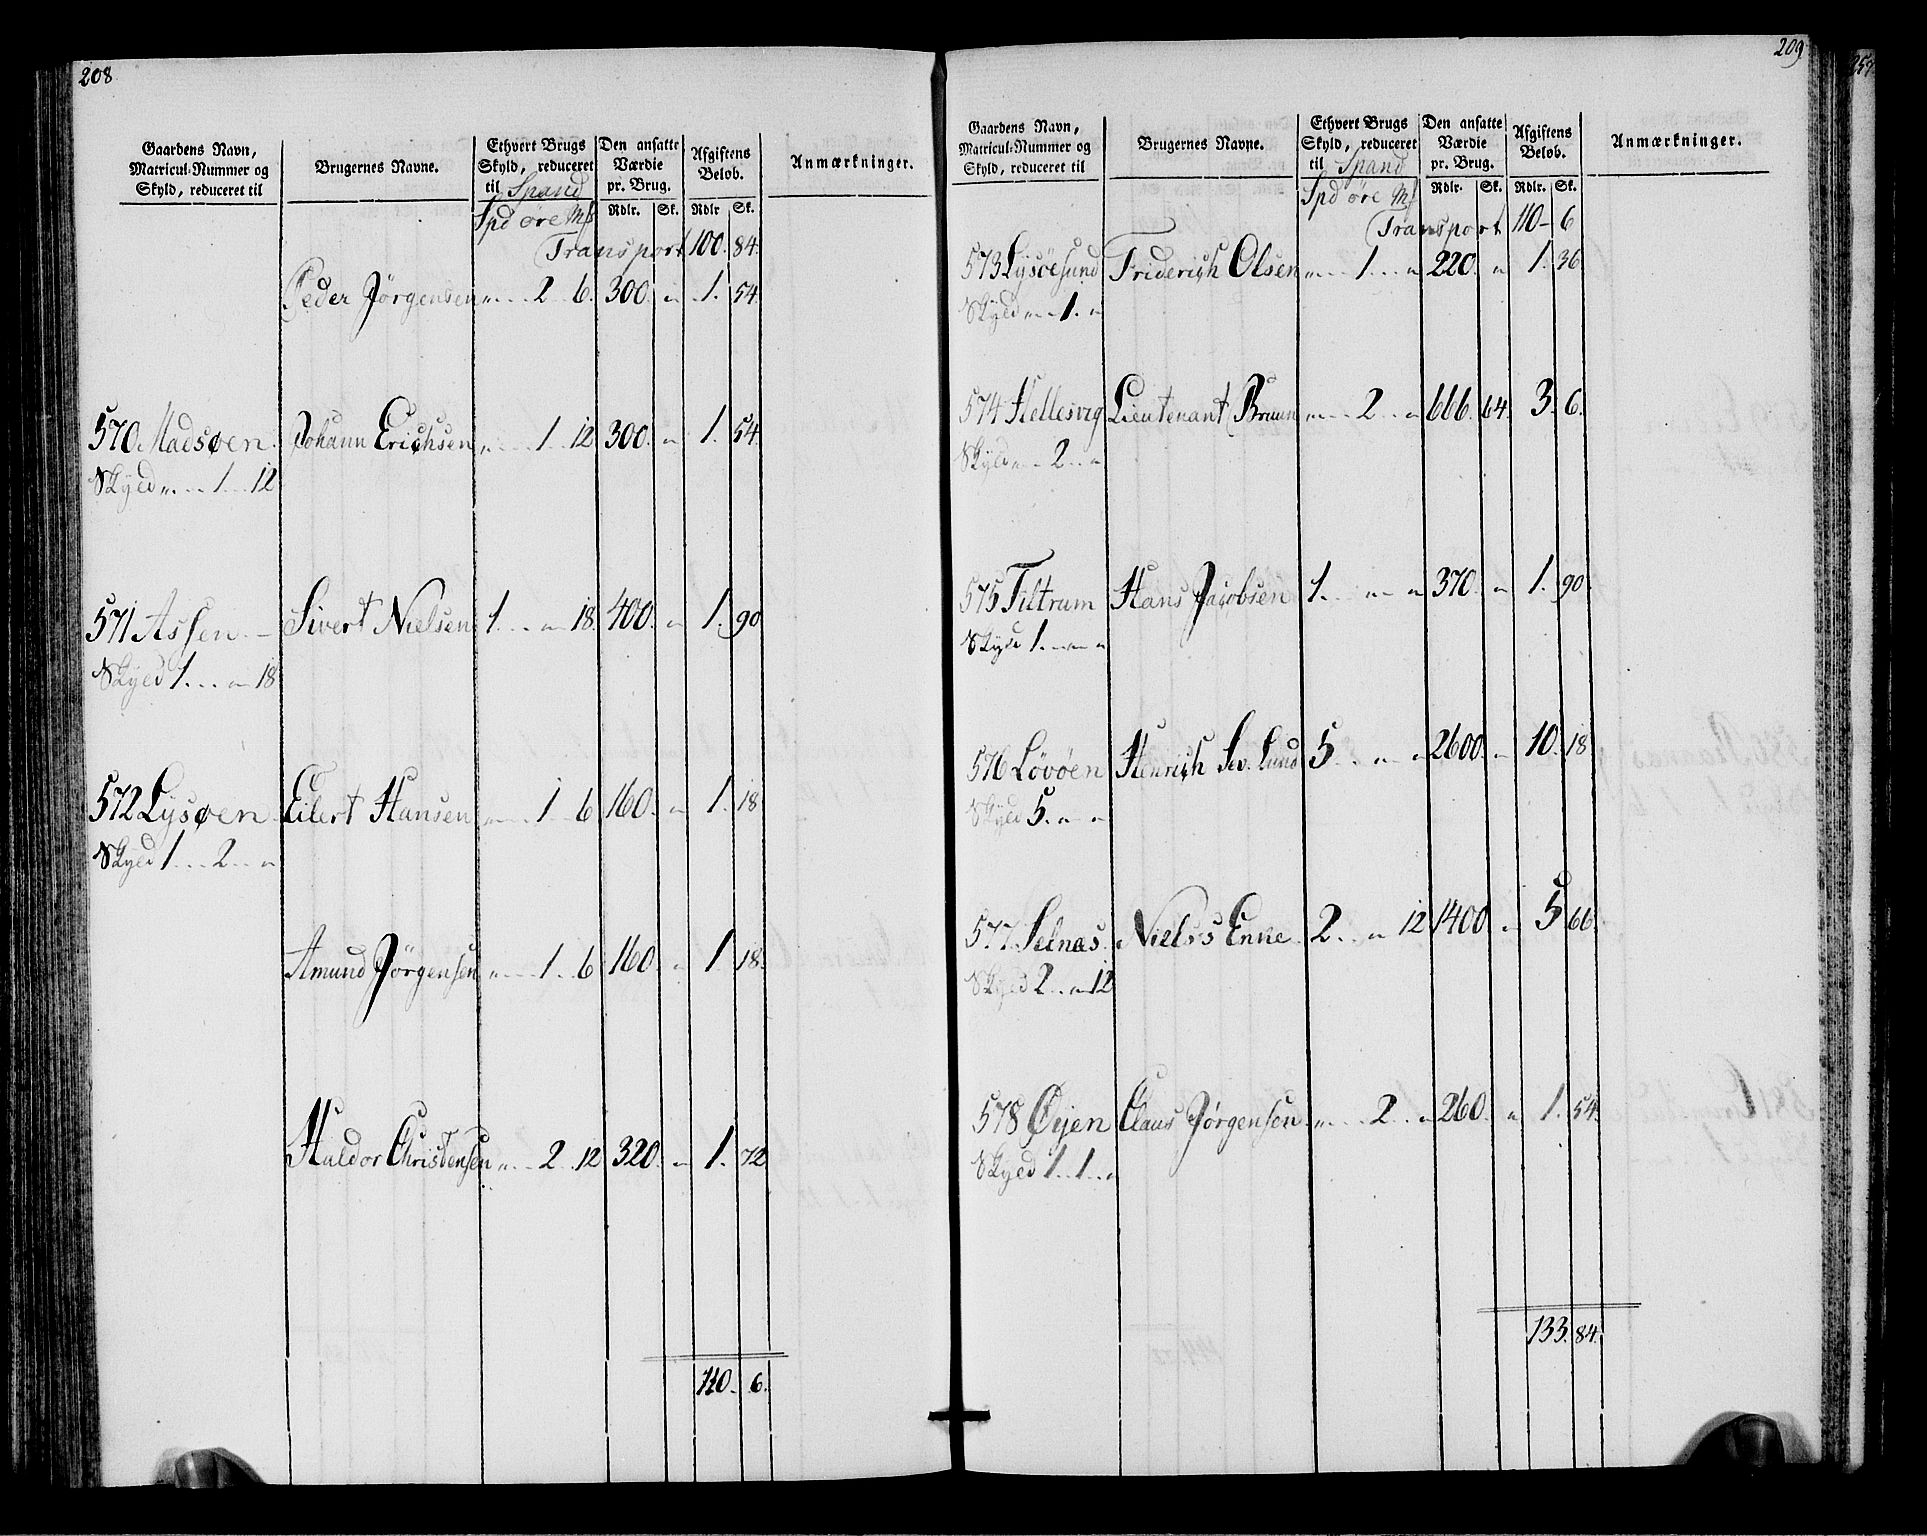 208
Gaardens Navn, Matricul-Nummer og Skyld, reduceret til | Brugernes Navne. | Ethvert Brugs Skyld, reduceret til Spand | Den ansatte Værdie pr. Brug. | Afgiftens Beløb. | Anmærkninger.
Spd øre Mk | Rdlr. | Sk. | Rdlr | Sk.
Transport 100. 84.
Peder Jørgensen „ 2 6. 300. „ 1. 54
570 Madsøen. Johann Erichsen „ 1 12 300. „ 1. 54
Skyld „ 1 12
571 Assen Sivert Nielsen 1. „ 18. 400. „ 1. 90
Skyld 1. „ 18
572 Lysøen Eilert Hansen „ 1 6 160. „ 1. 18
Skyld 1 2 „
Amund Jørgensen „ 1. 6 160. „ 1. 18.
Haldor Christensen „ 2 12 320. „ 1. 72
110. 6.
209
Gaardens Navn, Matricul-Nummer og Skyld, reduceret til | Brugernes Navne. | Ethvert Brugs Skyld, reduceret til Spand | Den ansatte Værdie pr. Brug. | Afgiftens Beløb. | Anmærkninger.
Spd øre Mk | Rdlr. | Sk. | Rdlr. | Sk.
Transport 110 6
573 Lysøesund Friderich Olsen „ 1 „ 220. „ 1. 36
Skyld „ 1. „
574 Hellesvig Lieutenant Bruun „ 2 „ 666. 64. 3. 6.
Skyld „ 2 „
575 Tiltrum Hans Jacobsen 1. „ „ 370. „ 1. 90.
Skyld 1. „ „
576 Løvøen Henrich Sev. Lund 5. „ „ 2600. „ 10. 18
Skyld 5. „ „
577 Selnæs. Nielss Enke 2. „ 12 1400. „ 5 66.
Skyld 2. „ 12
578 Øyen Claus Jørgensen „ 2 „ 260. „ 1. 54.
Skyld 1 1 „
133. 84.